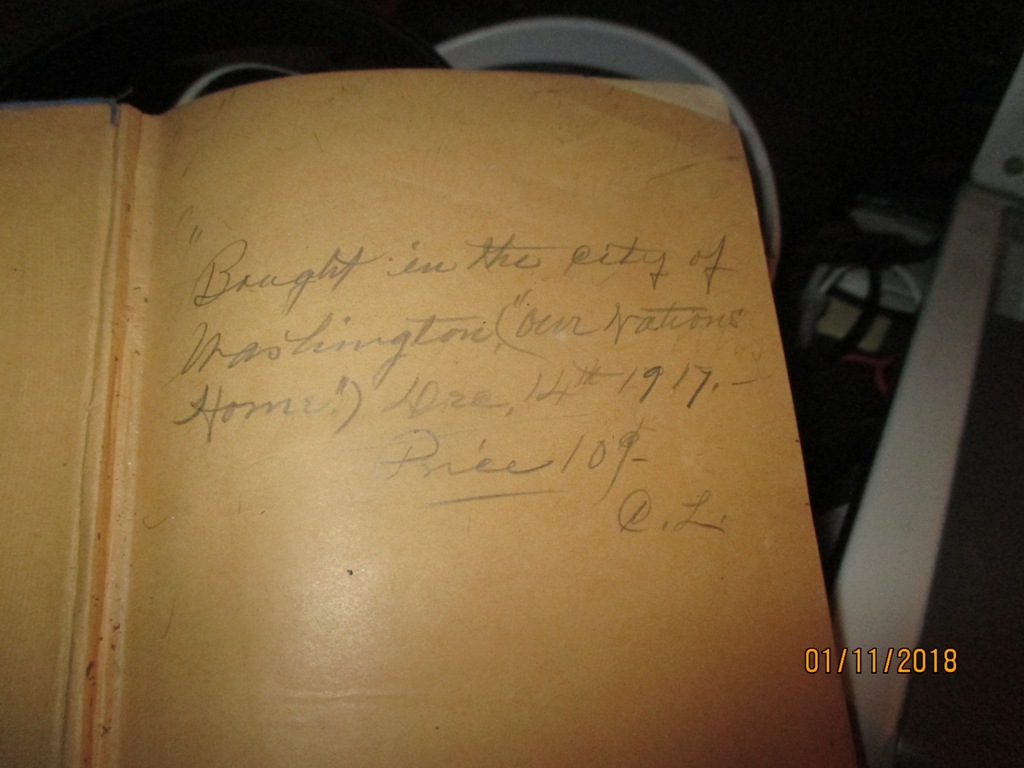 "Bought in the city of
Washington ("Our Nations
Home") Dec, 14th 1917.-
Price 10¢-
C. L.
01/11/2018